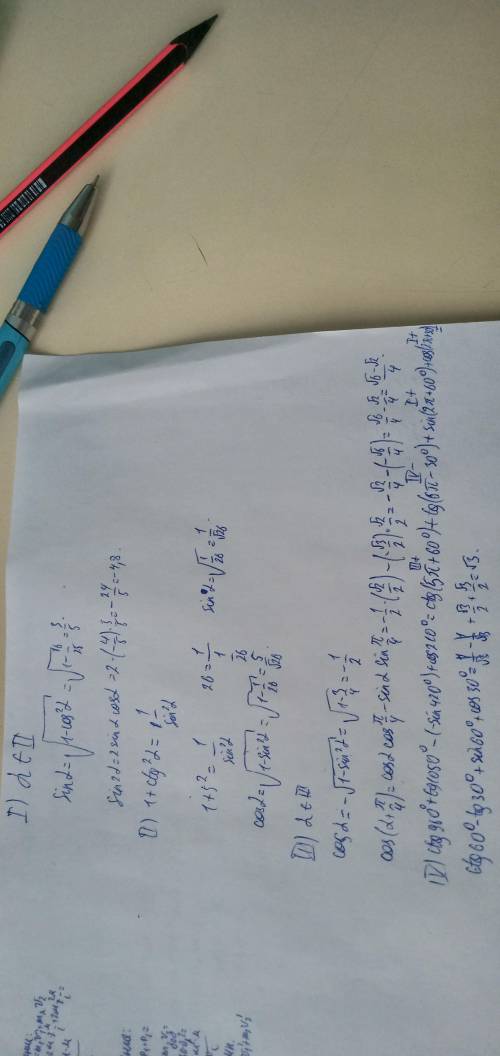 I) α ∈ II
sin α = √(1-cos²α) = √(1-16/25) = 3/5.
sin2α = 2sinα cosα = 2·(-4/5)·3/5 = -24/5 = -4,8.
II) 1+ctg²α = 1/sin²α
1+5² = 1/sin²α 26 = 1/(1/26) sin α = √(1/26) = 1/√26.
cosα = √(1-sin²α) = √(1-1/26) = 5/√26
III) α ∈ III
cosα = -√(1-sin²α) = √(1-3/4) = -1/2
cos(α+π/4) = cosα cos π/4 - sinα sin π/4 = -1/2·(√2/2) - (-√3/2)·√2/2 = -√2/4 - (-√6/4) = √6/4 - √2/4 = √6-√2/4
IV) ctg 960° + tg 1050° - (sin 420°) + cos = ctg(5π+60°) + tg(6π-30°) + sin(2π+60°) + cos
III+ IV- I+ I+
ctg 60° - tg 30° + sin 60° + cos 30° = 1/√3 - 1/√3 + √3/2 + √3/2 = √3.